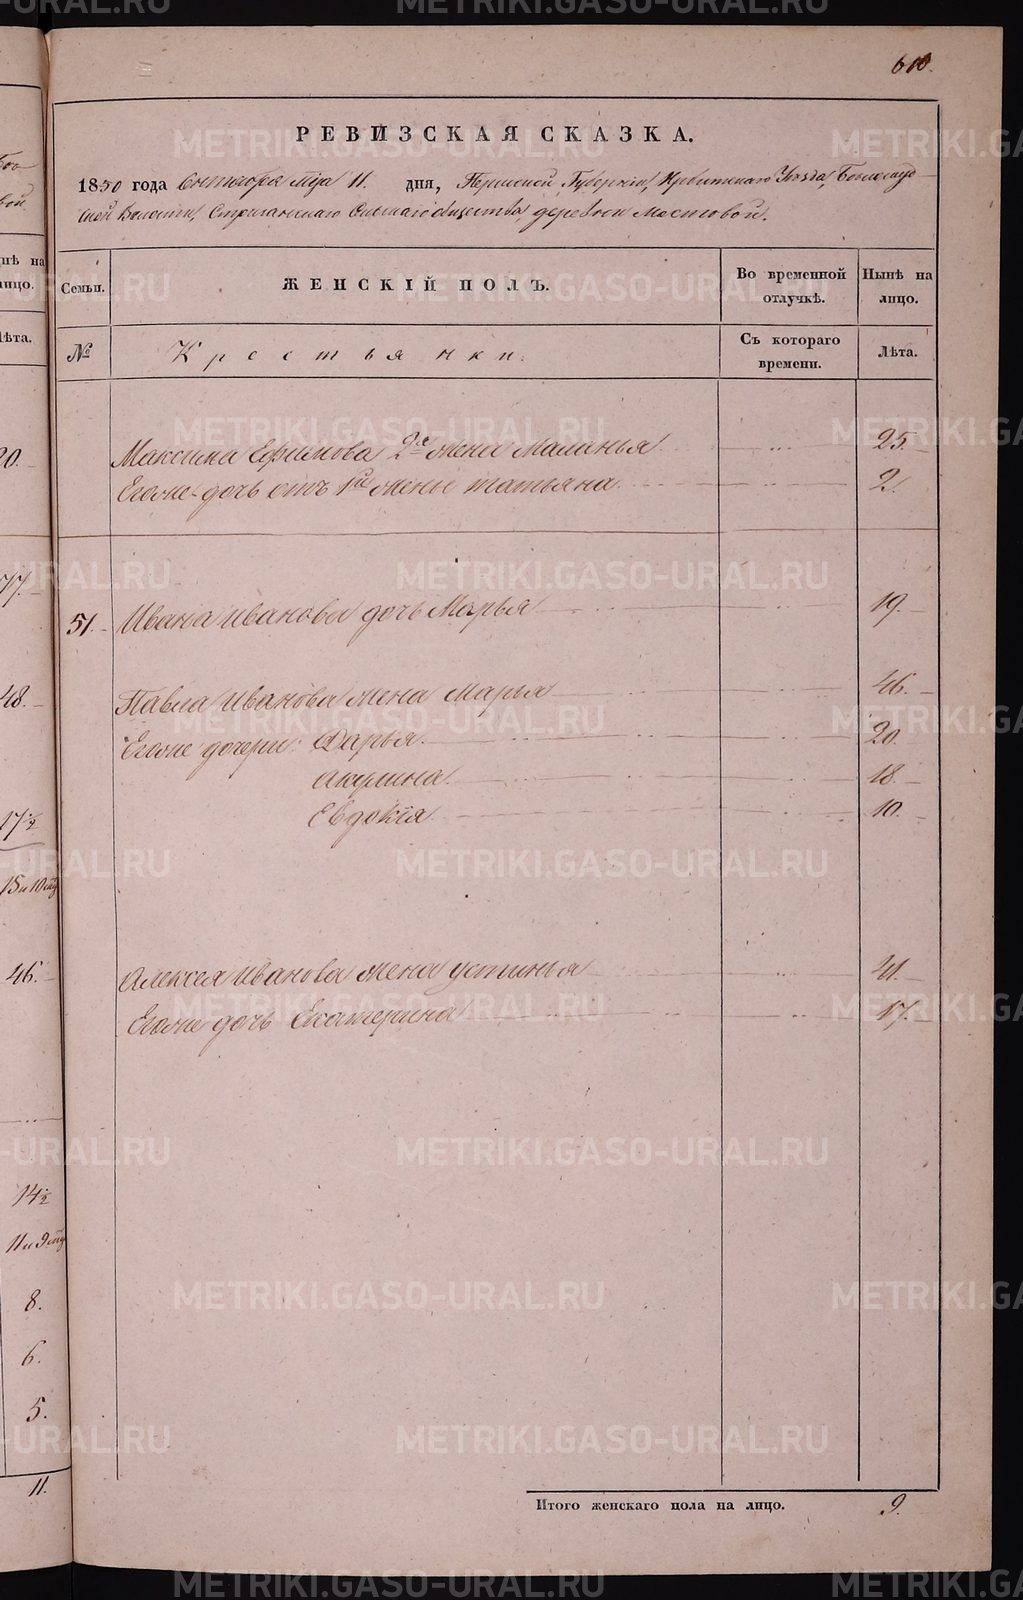 610.
РЕВИЗСКАЯ СКАЗКА.
1850 года Октября Мца 11. дня, Пермской Губернии, Ирбитского Уѣзда,
ской Волости, Стриганскаго Сельскаго общества, деревни Мостовой.
Семьи. ЖЕНСКІЙ ПОЛЪ. Во временной отлучкѣ. Нынѣ на лицо.
№ Крестьянки: Съ котораго времени. Лѣта.
Максима Ефимова 2я жена Маланья 25.
Егоже дочь отъ 1й жены Татьяна 2.
51. Ивана Иванова дочь Марья 19.
Павла Иванова жена Марья 46.
Егоже дочери: Дарья. 20.
Акулина. 18.
Евдокія. 10.
Алексея Иванова жена Устинья 41.
Егоже дочь Екатерина 17.
Итого женскаго пола на лицо. 9.
нѣ на
лицо.
лѣта.
20.
77.
48.
17½
15 и 10
46.
14½
11 и 9
8.
6.
5.
11.
METRIKI.GASO-URAL.RU